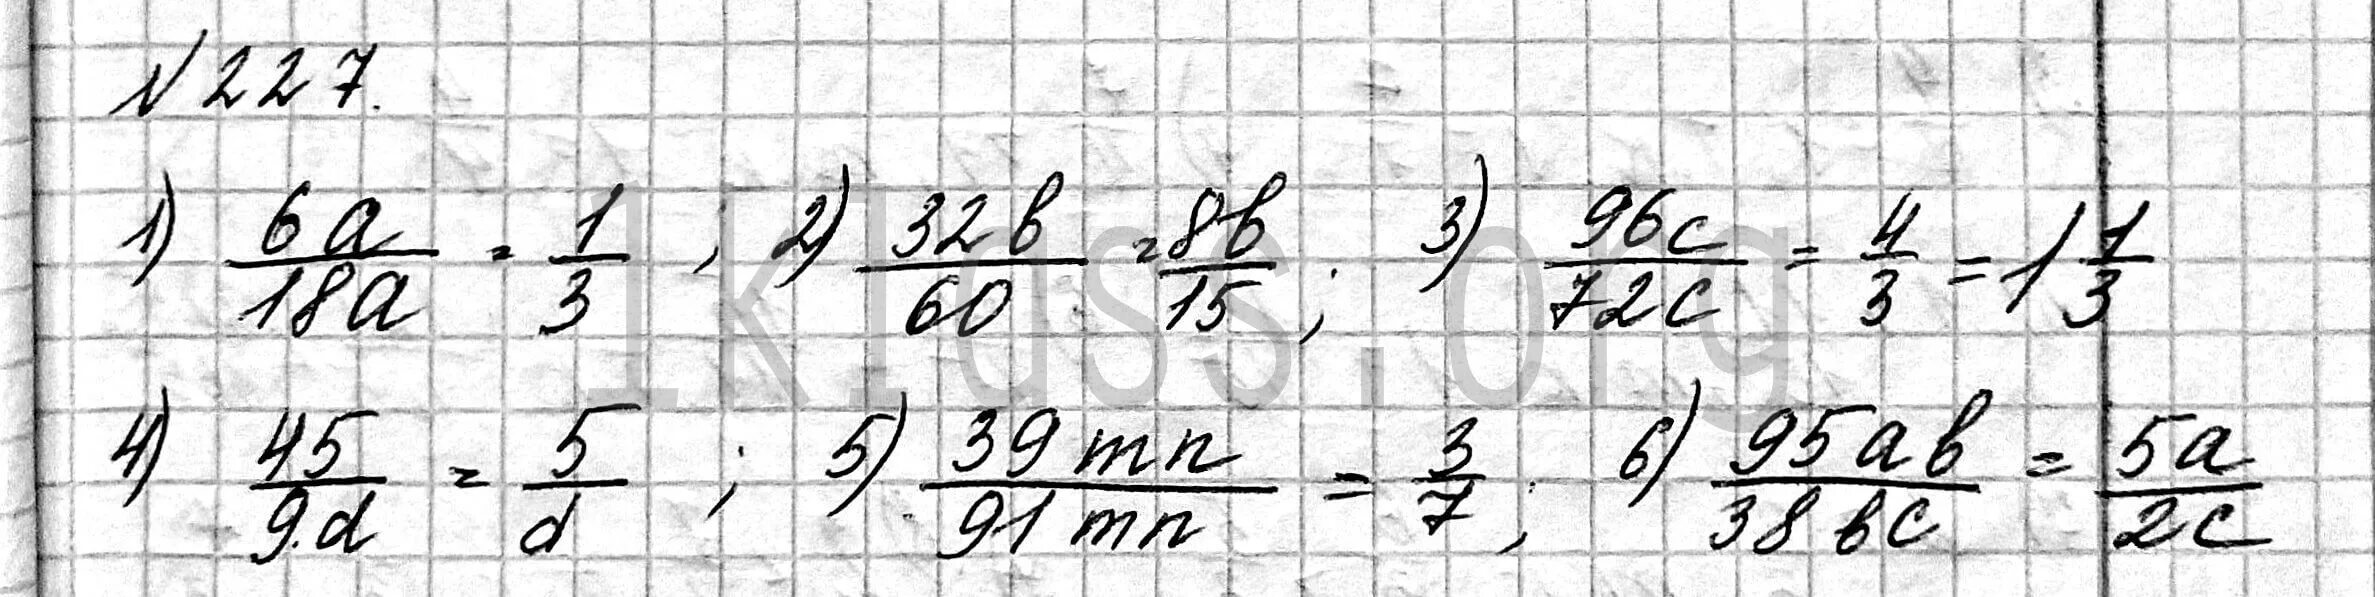 №227.
1) 6a/18a = 1/3 ; 2) 32b/60 = 8b/15 ; 3) 96c/72c = 4/3 = 1 1/3
4) 45/9d = 5/d ; 5) 39mn/91mn = 3/7 ; 6) 95ab/38bc = 5a/2c
1klass.org